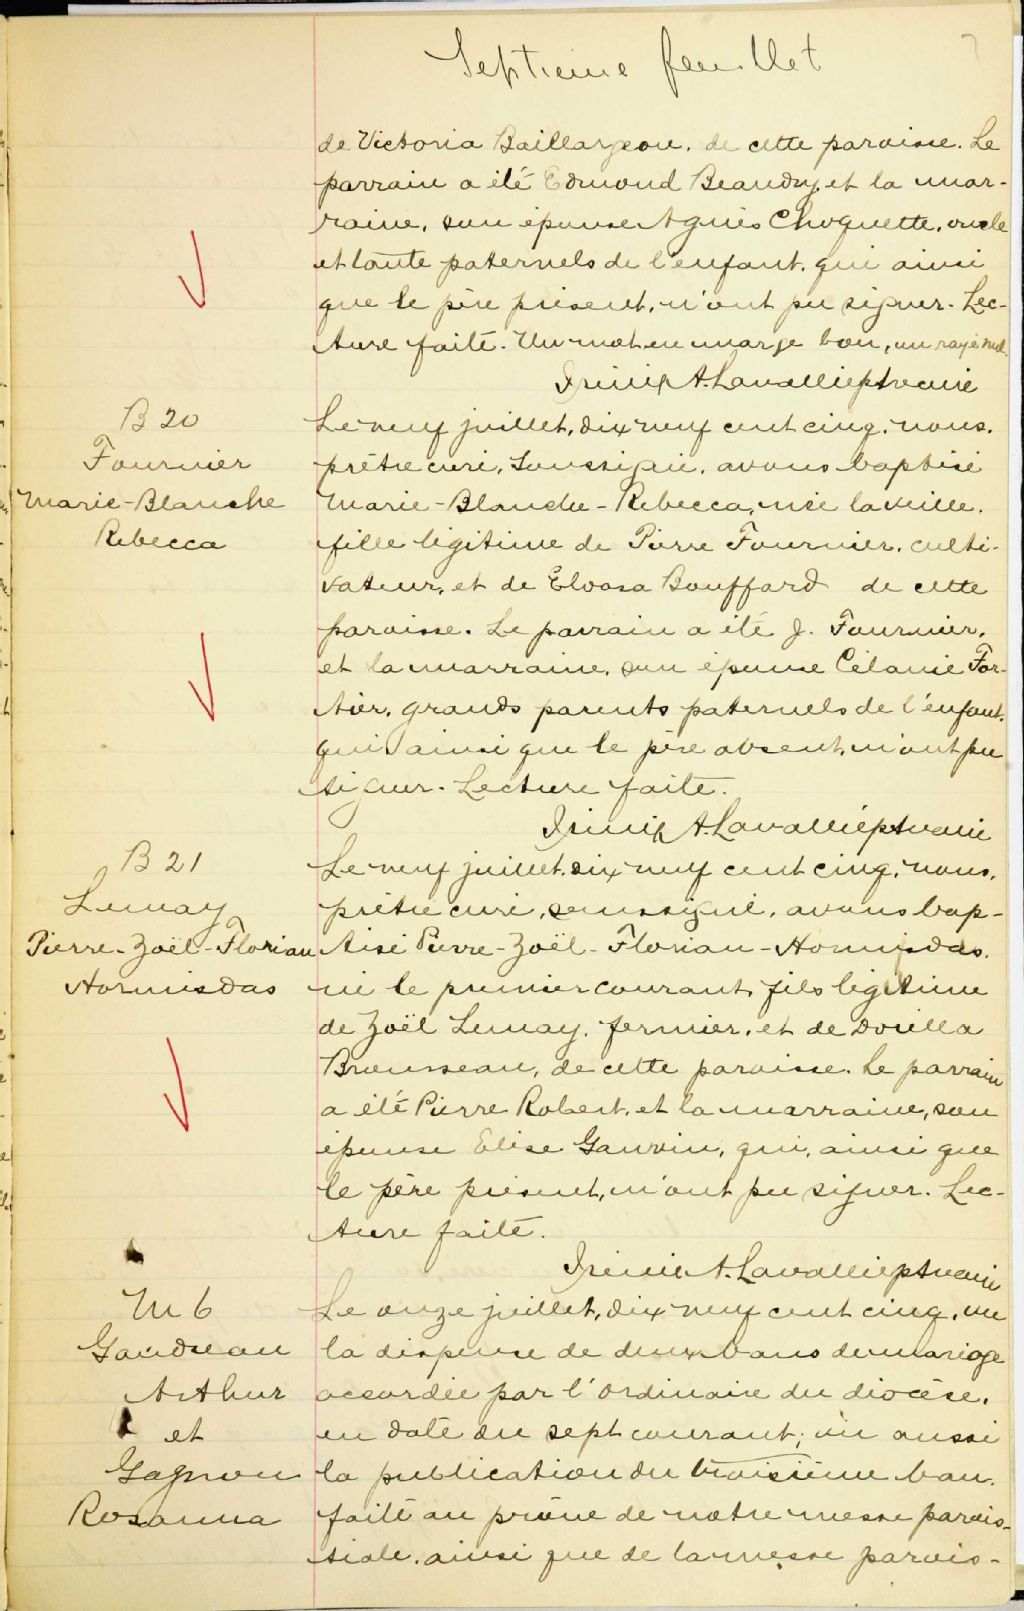 7
Septieme feuillet
de Victoria Baillargeon, de cette paroisse. Le
parrain a été Edmond Beaudry, et la mar-
raine, son épouse Agnès Choquette, oncle
et tante paternels de l'enfant, qui ainsi
que le père présent, n'ont pu signer. Lec-
ture faite. Un mot en marge bon, un rayé nul.
A. Lavallée ptre curé
B 20
Fournier
Marie-Blanche
Rebecca
Le neuf juillet, dix neuf cent cinq, nous,
prêtre curé, soussigné, avons baptisé
Marie-Blanche-Rebecca, née la veille,
fille légitime de Pierre Fournier, culti-
vateur, et de Elvosa Bouffard de cette
paroisse. Le parrain a été J. Fournier,
et la marraine, son épouse Célanie For-
tier, grands parents paternels de l'enfant,
qui, ainsi que le père absent, n'ont pu
signer. Lecture faite.
A. Lavallée ptre curé
B 21
Lemay
Pierre-Zoël-Florian
Hormisdas
Le neuf juillet, dix neuf cent cinq, nous,
prêtre curé, soussigné, avons bap-
tisé Pierre-Zoël-Florian-Hormisdas,
né le premier courant, fils légitime
de Zoël Lemay, fermier, et de Dorilla
Brousseau, de cette paroisse. Le parrain
a été Pierre Robert, et la marraine, son
épouse Elise Gauvin, qui, ainsi que
le père présent, n'ont pu signer. Lec-
ture faite.
A. Lavallée ptre curé
M 6
Gaudreau
Arthur
et
Gagnon
Rosanna
Le onze juillet, dix neuf cent cinq, vu
la dispense de deux bans de mariage
accordée par l'Ordinaire du diocèse,
en date du sept courant; vu aussi
la publication du troisième ban,
faite au prône de notre messe parois-
siale, ainsi que de la messe parois-